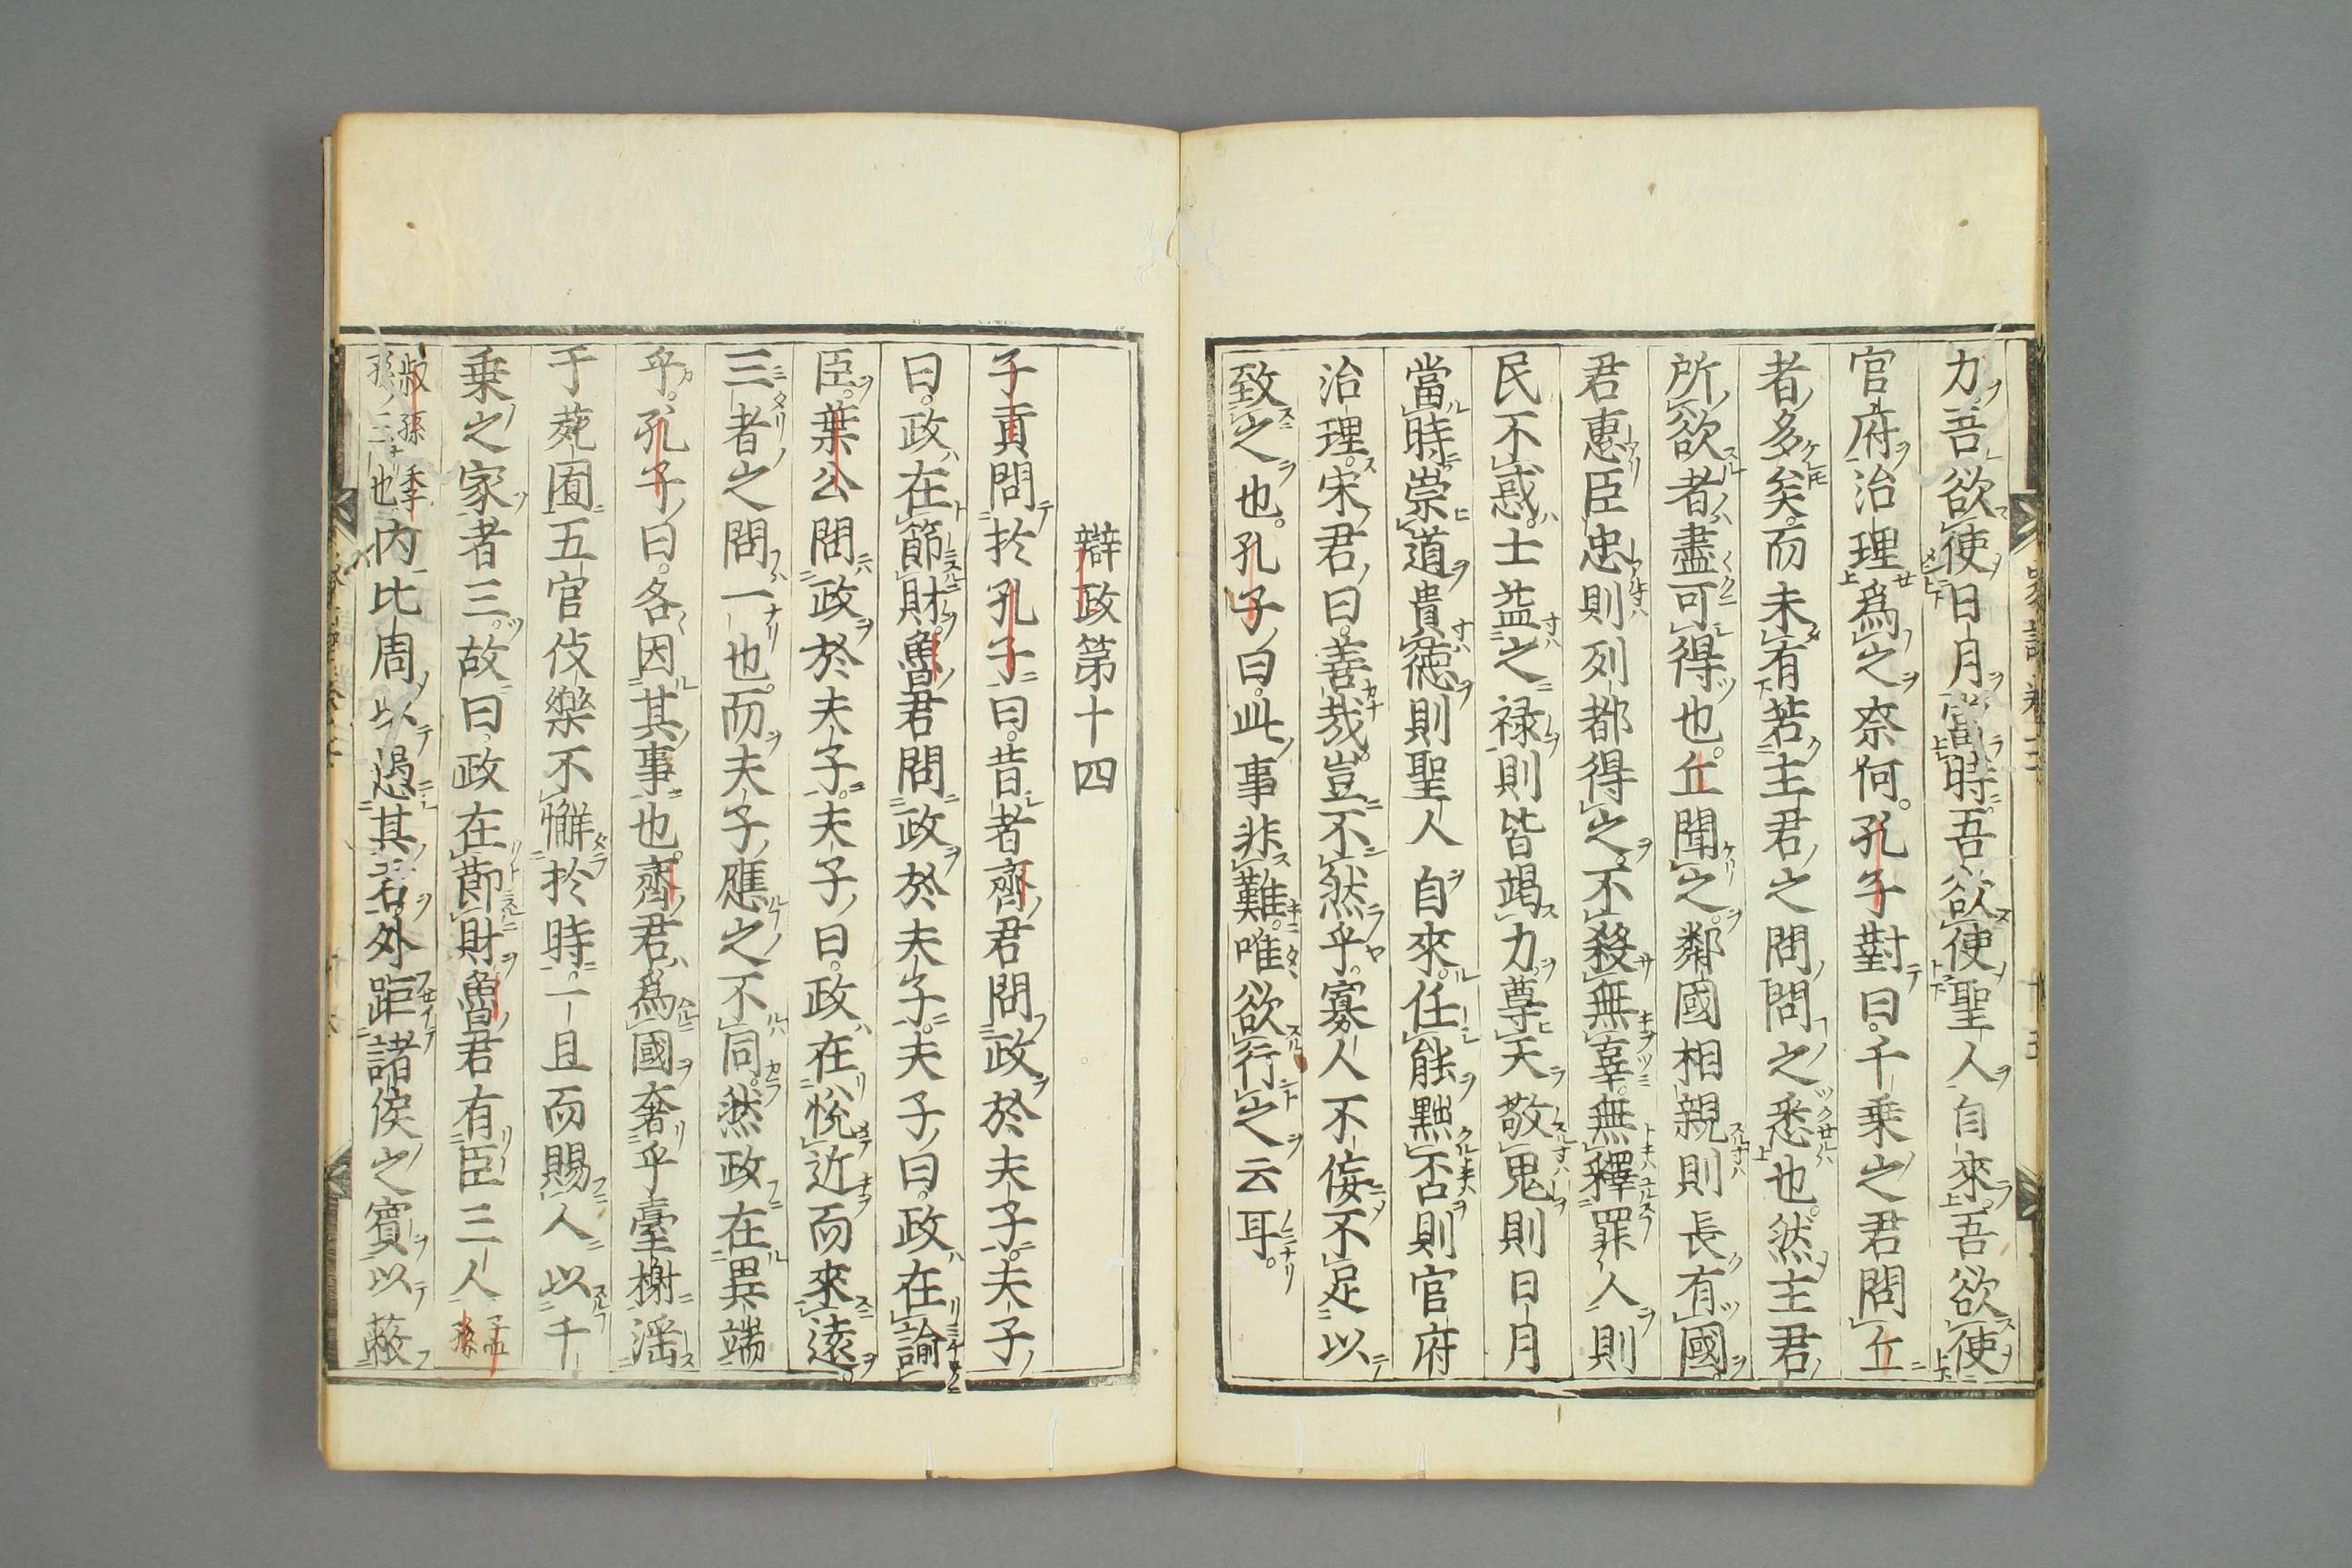 力吾欲使日月當時吾欲使聖人自來吾欲使
官府治理爲之奈何。孔子對曰。千乗之君問丘
者多矣。而未有若主君之問問之悉也。然主君
所欲者盡可得也。丘聞之。鄰國相親則長有國
君惠臣忠則列都得之。不殺無辜。無釋罪人則
民不惑。士益之禄則皆竭力。尊天敬鬼則日月
當時崇道貴德則聖人自來。任能黜否則官府
治理。宋君曰。善哉。豈不然乎。寡人不侫不足以
致之也。孔子曰。此事非難。唯欲行之云耳。
辯政第十四
子貢問於孔子曰。昔者齊君問政於夫子。夫子
曰。政在節財。魯君問政於夫子。夫子曰。政在諭
臣。葉公問政於夫子。夫子曰。政在悅近而來遠。
三者之問一也。而夫子應之不同。然政在異端
乎。孔子曰。各因其事也。齊君爲國奢乎臺榭滛
于苑囿五官伎樂不懈於時。一旦而賜人以千
乗之家者三。故曰政在節財魯君有臣三人孟孫
叔孫季孫三也内比周以愚其君外距諸侯之賓以蔽